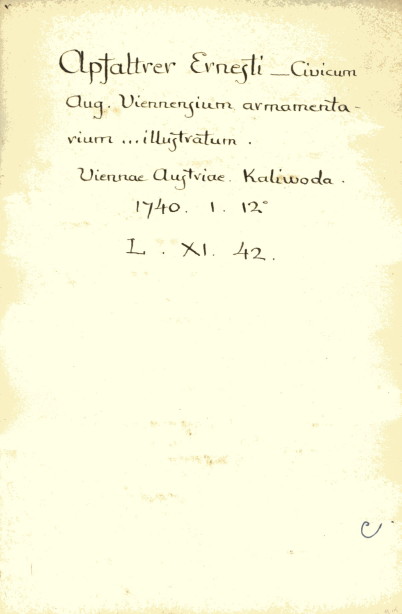 Apfaltrer Ernesti — Civicum
Aug. Viennensium armamenta-
rium ... illustratum.
Viennae Austriae. Kaliwoda.
1740. 1. 12°
L. XI. 42.
C.